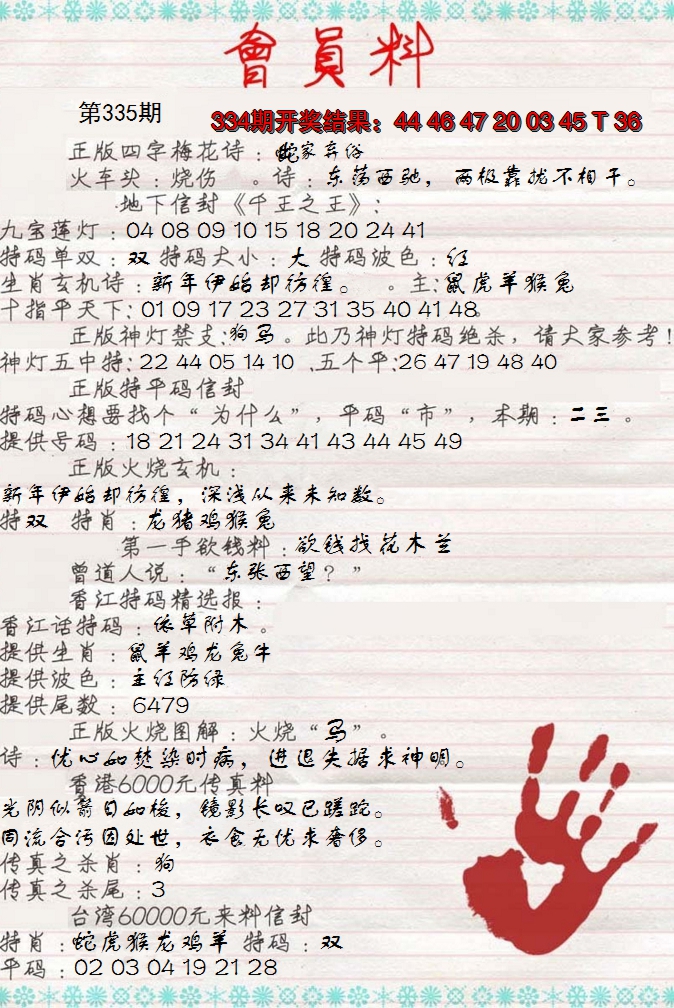 會員料
第335期
334期开奖结果：44 46 47 20 03 45 T 36
正版四字梅花诗：蛇家弃俗
火车头：烧伤 。诗：东荡西驰，两极靠拢不相干。
地下信封《千王之王》：
九宝莲灯：04 08 09 10 15 18 20 24 41
特码单双：双 特码大小：大 特码波色：红
生肖玄机诗：新年伊始却彷徨。 。主：鼠虎羊猴兔
十指平天下：01 09 17 23 27 31 35 40 41 48。
正版神灯禁支：狗马。此乃神灯特码绝杀，请大家参考！
神灯五中特：22 44 05 14 10 .五个平：26 47 19 48 40
正版特平码信封
特码心想要找个“为什么”，平码“市”，本期：二三。
提供号码：18 21 24 31 34 41 43 44 45 49
正版火烧玄机：
新年伊始却彷徨，深浅从来未知数。
特双 特肖：龙猪鸡猴兔
第一手欲钱料：欲钱找花木兰
曾道人说：“东张西望？”
香江特码精选报：
香江话特码：依草附木。
提供生肖：鼠羊鸡龙兔牛
提供波色：主红防绿
提供尾数：6479
正版火烧图解：火烧“马”。
诗：忧心如焚染时病，进退失据求神明。
香港6000元传真料
光阴似箭日如梭，镜影长叹已蹉跎。
同流合污因处世，衣食无忧求奢侈。
传真之杀肖：狗
传真之杀尾：3
台湾60000元来料信封
特肖：蛇虎猴龙鸡羊 特码：双
平码：02 03 04 19 21 28